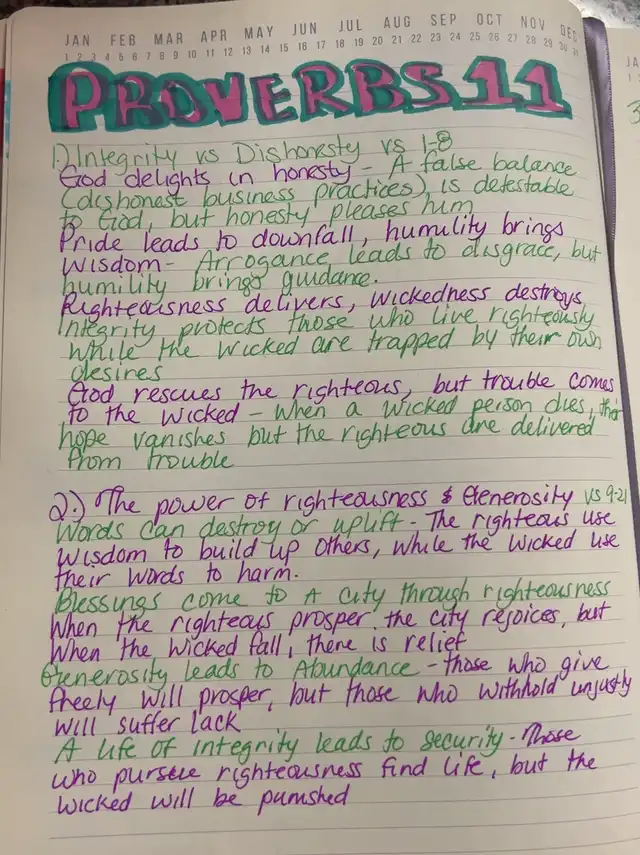 JAN FEB MAR APR MAY JUN JUL AUG SEP OCT NOV DEC
1 2 3 4 5 6 7 8 9 10 11 12 13 14 15 16 17 18 19 20 21 22 23 24 25 26 27 28 29 30 31
PROVERBS 11
1.) Integrity vs Dishonesty vs 1-8
God delights in honesty - A false balance
(dishonest business practices) is detestable
to God, but honesty pleases him
Pride leads to downfall, humility brings
Wisdom - Arrogance leads to disgrace, but
humility brings guidance.
Righteousness delivers, wickedness destroys
Integrity protects those who live righteously
While the wicked are trapped by their own
desires
God rescues the righteous, but trouble comes
to the wicked - When a wicked person dies, their
hope vanishes but the righteous are delivered
from trouble
2.) The power of righteousness & Generosity vs 9-21
Words can destroy or uplift - The righteous use
Wisdom to build up others, while the wicked use
their words to harm.
Blessings come to A city through righteousness
When the righteous prosper the city rejoices, but
When the wicked fall, there is relief
Generosity leads to Abundance - those who give
freely will prosper, but those who withhold unjustly
will suffer lack
A life of integrity leads to security - Those
who pursue righteousness find life, but the
wicked will be punished
JA